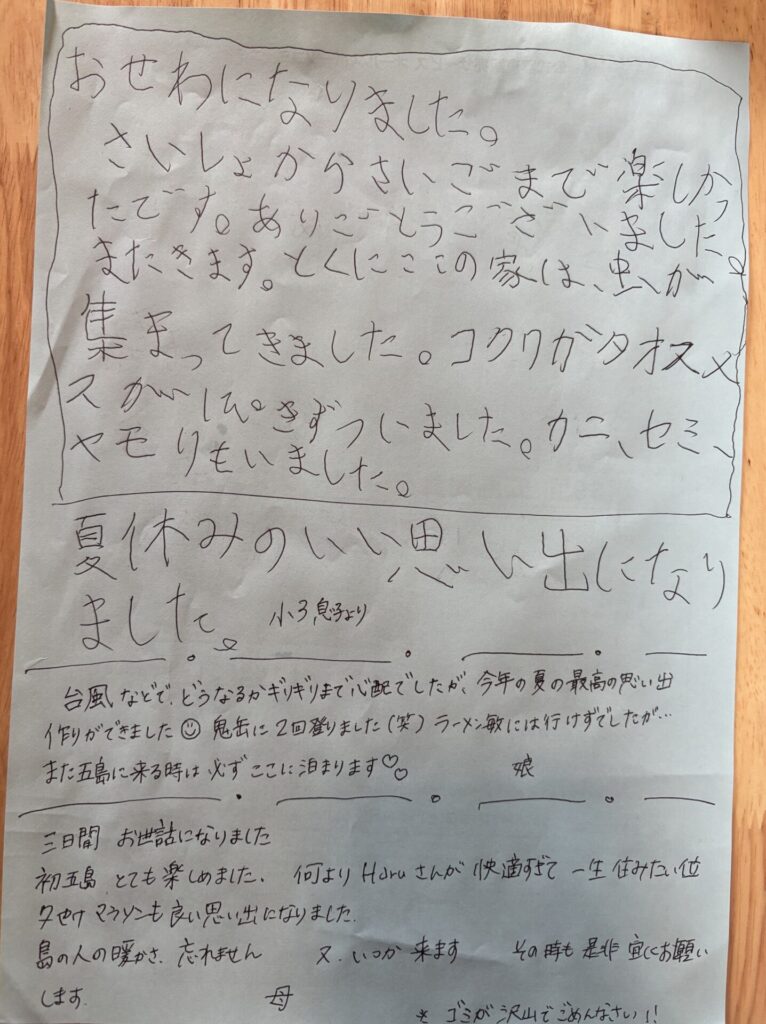 おせわになりました。
さいしょからさいごまで楽しかっ
たです。ありごとうございました。
またきます。とくにここの家は、虫が
集まってきました。コクワガタオスメ
スがいて。きずついました。カニ、セミ、
ヤモリもいました。
夏休みのいい思い出になり
ました。 小3息子より
台風などで、どうなるかギリギリまで心配でしたが、今年の夏の最高の思い出
作りができました☺ 鬼岳に2回登りました(笑) ラーメン敏には行けずでしたが…
また五島に来る時は必ずここに泊まります♡♡ 娘
三日間 お世話になりました
初五島 とても楽しめました、 何より Haruさんが 快適すぎて 一生 住みたい位
夕やけマラソンも良い思い出になりました.
島の人の暖かさ、忘れません 又、いつか 来ます その時も 是非 宜しくお願い
します. 母
* ゴミが沢山でごめんなさい!!